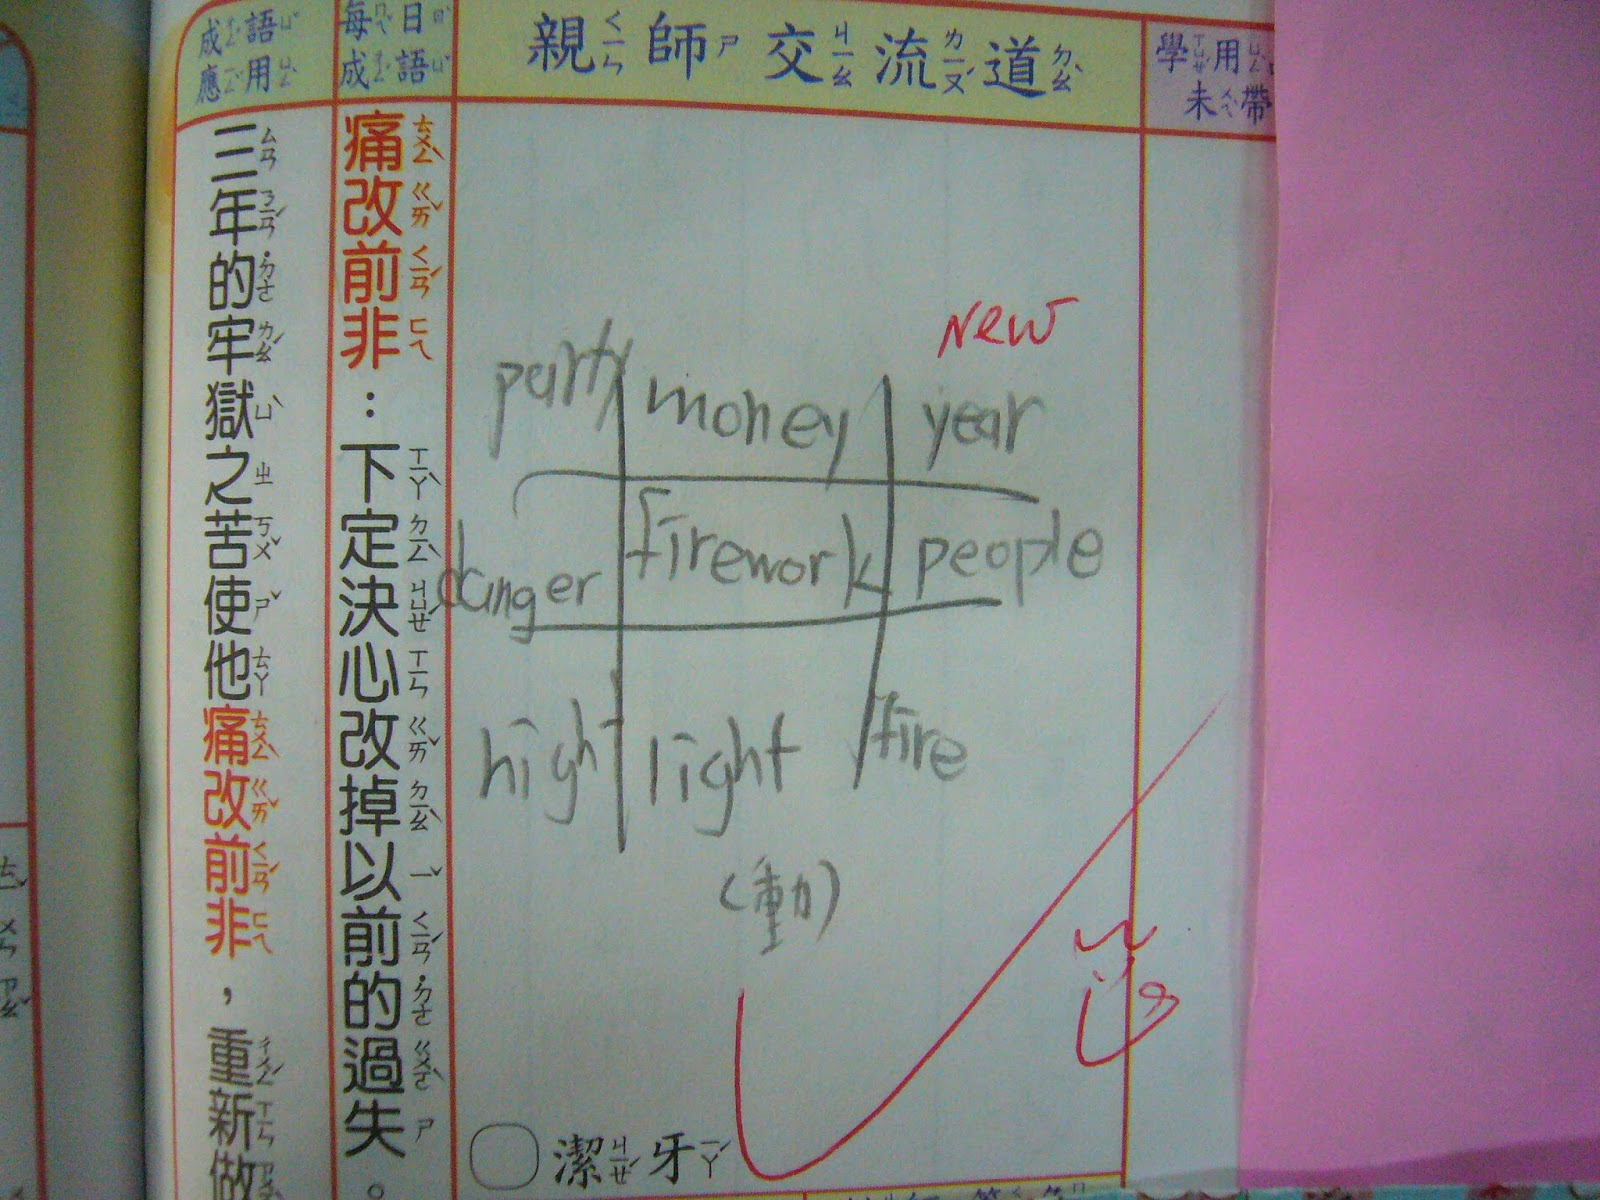 學用
未帶
親師交流道
每日
成語
痛改前非：下定決心改掉以前的過失。
成語
應用
三年的牢獄之苦使他痛改前非，重新做
new
party money year
danger firework people
high light fire
(動)
潔牙